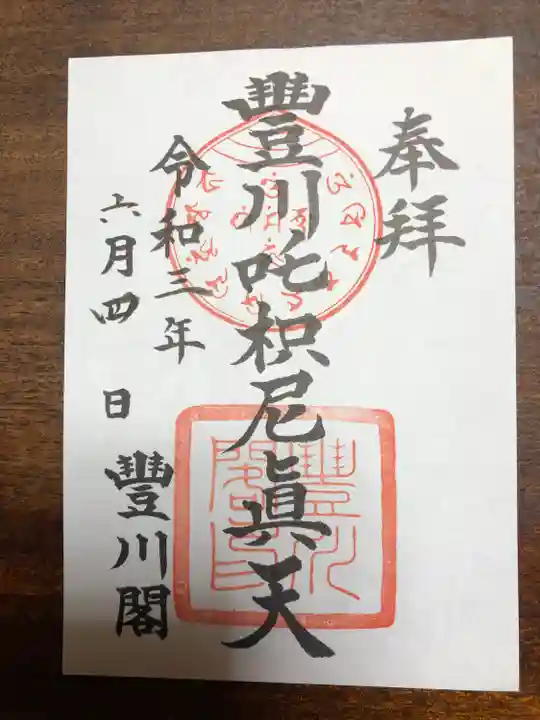 奉拝
豐川吒枳尼眞天
令和三年
六月四日
豐川閣
豐川閣印